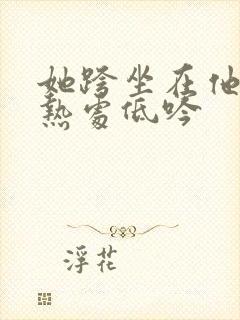 她跨坐在他
熱處低吟
浮花